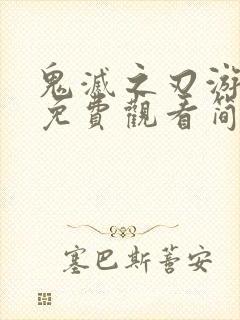 鬼滅之刃游
免費觀看簡
塞巴斯蒼安